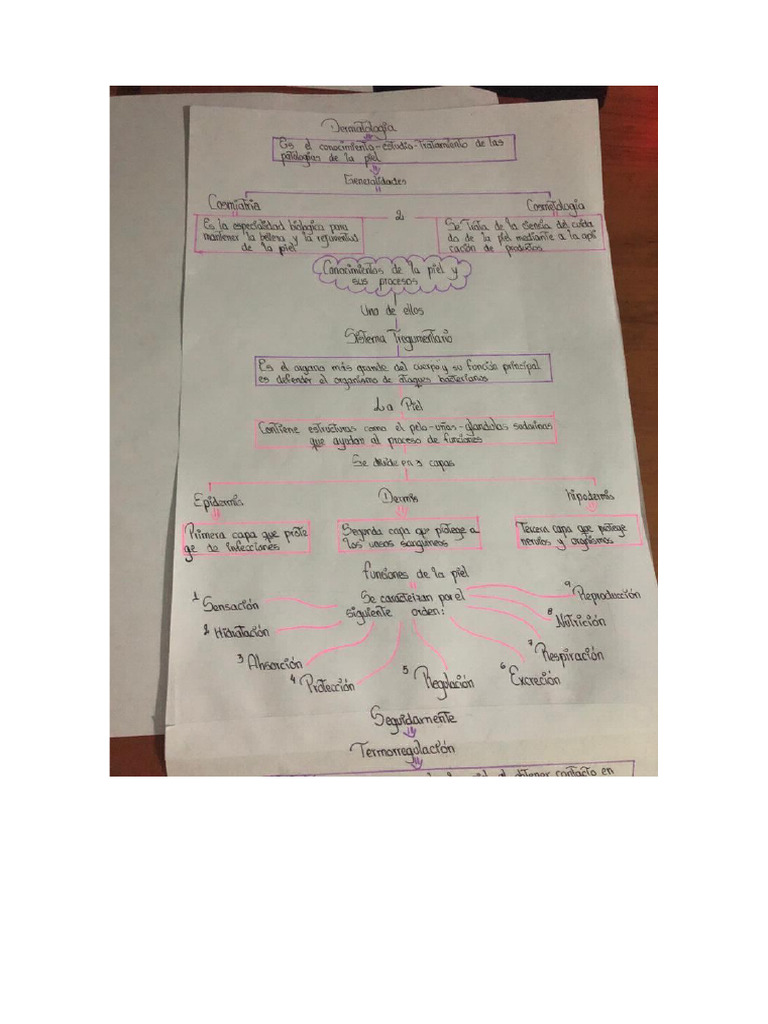 Dermatología
Es el conocimiento-estudio-tratamiento de las
patologías de la piel
Generalidades
Cosmiatria
2
Cosmetología
Es la especialidad biologica para
mantener la belleza y la rejuventud
de la piel
Se trata de la ciencia del cuida
do de la piel mediante a la apli
cación de productos
Conocimientos de la piel y
sus procesos
Uno de ellos
Sistema Tregumentario
Es el organo más grande del cuerpo y su función principal
es defender el organismo de ataques bacterianos
La Piel
Contiene estructuras como el pelo-uñas-glandulas sudorinas
que ayudan al proceso de funciones
Se divide en 3 capas
Epidermis
Dermis
hipodermis
Primera capa que prote
ge de infecciones
Segunda capa que protege a
los vasos sanguineos
Tercera capa que protege
nervios y organismos
funciones de la piel
Se caracterizan por el
siguiente orden:
1 Sensación
2 Hidratación
3 Absorción
4 Protección
5 Regulación
6 Excreción
7 Respiración
8 Nutrición
9 Reproducción
Seguidamente
Termorregulación
la piel al obtener contacto en